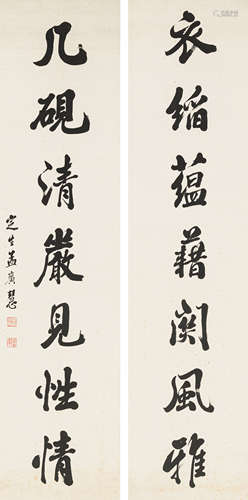 衣縚蘊藉関風雅
几硯清嚴見性情
定生孟廣慧